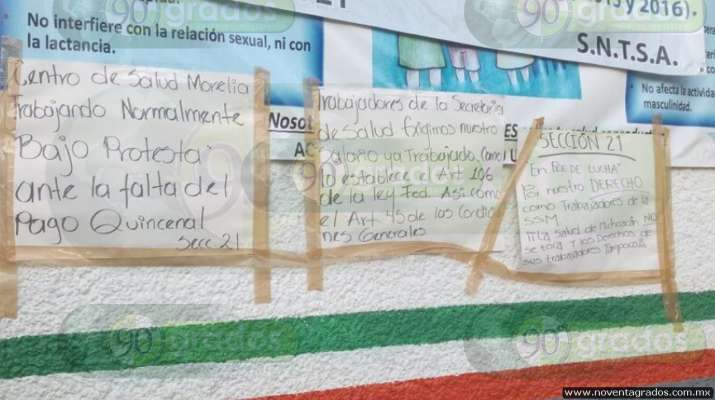 90grados
21
15 y 2016).
S.N.T.S.A.
No interfiere con la relación sexual, ni con
la lactancia.
No afecta la activida
masculinidad.
Nosot
Centro de Salud Morelia
Trabajando Normalmente
Bajo Protesta
ante la falta del
Pago Quincenal
Secc 21
Trabajadores de la Secretaria
de Salud Exigimos nuestro
Salario ya Trabajado, Como
lo establece el Art 106
de la ley Fed. Asi como
el Art 45 de las Condicio
nes Generales
SECCIÓN 21
En Pie de Lucha
Por nuestro DERECHO
como Trabajadores de la
SSM
!!! La Salud de Michoacán NO
se toca y los Derechos de
sus trabajadores Tampoco!!
90grados
90grados
www.noventagrados.com.mx